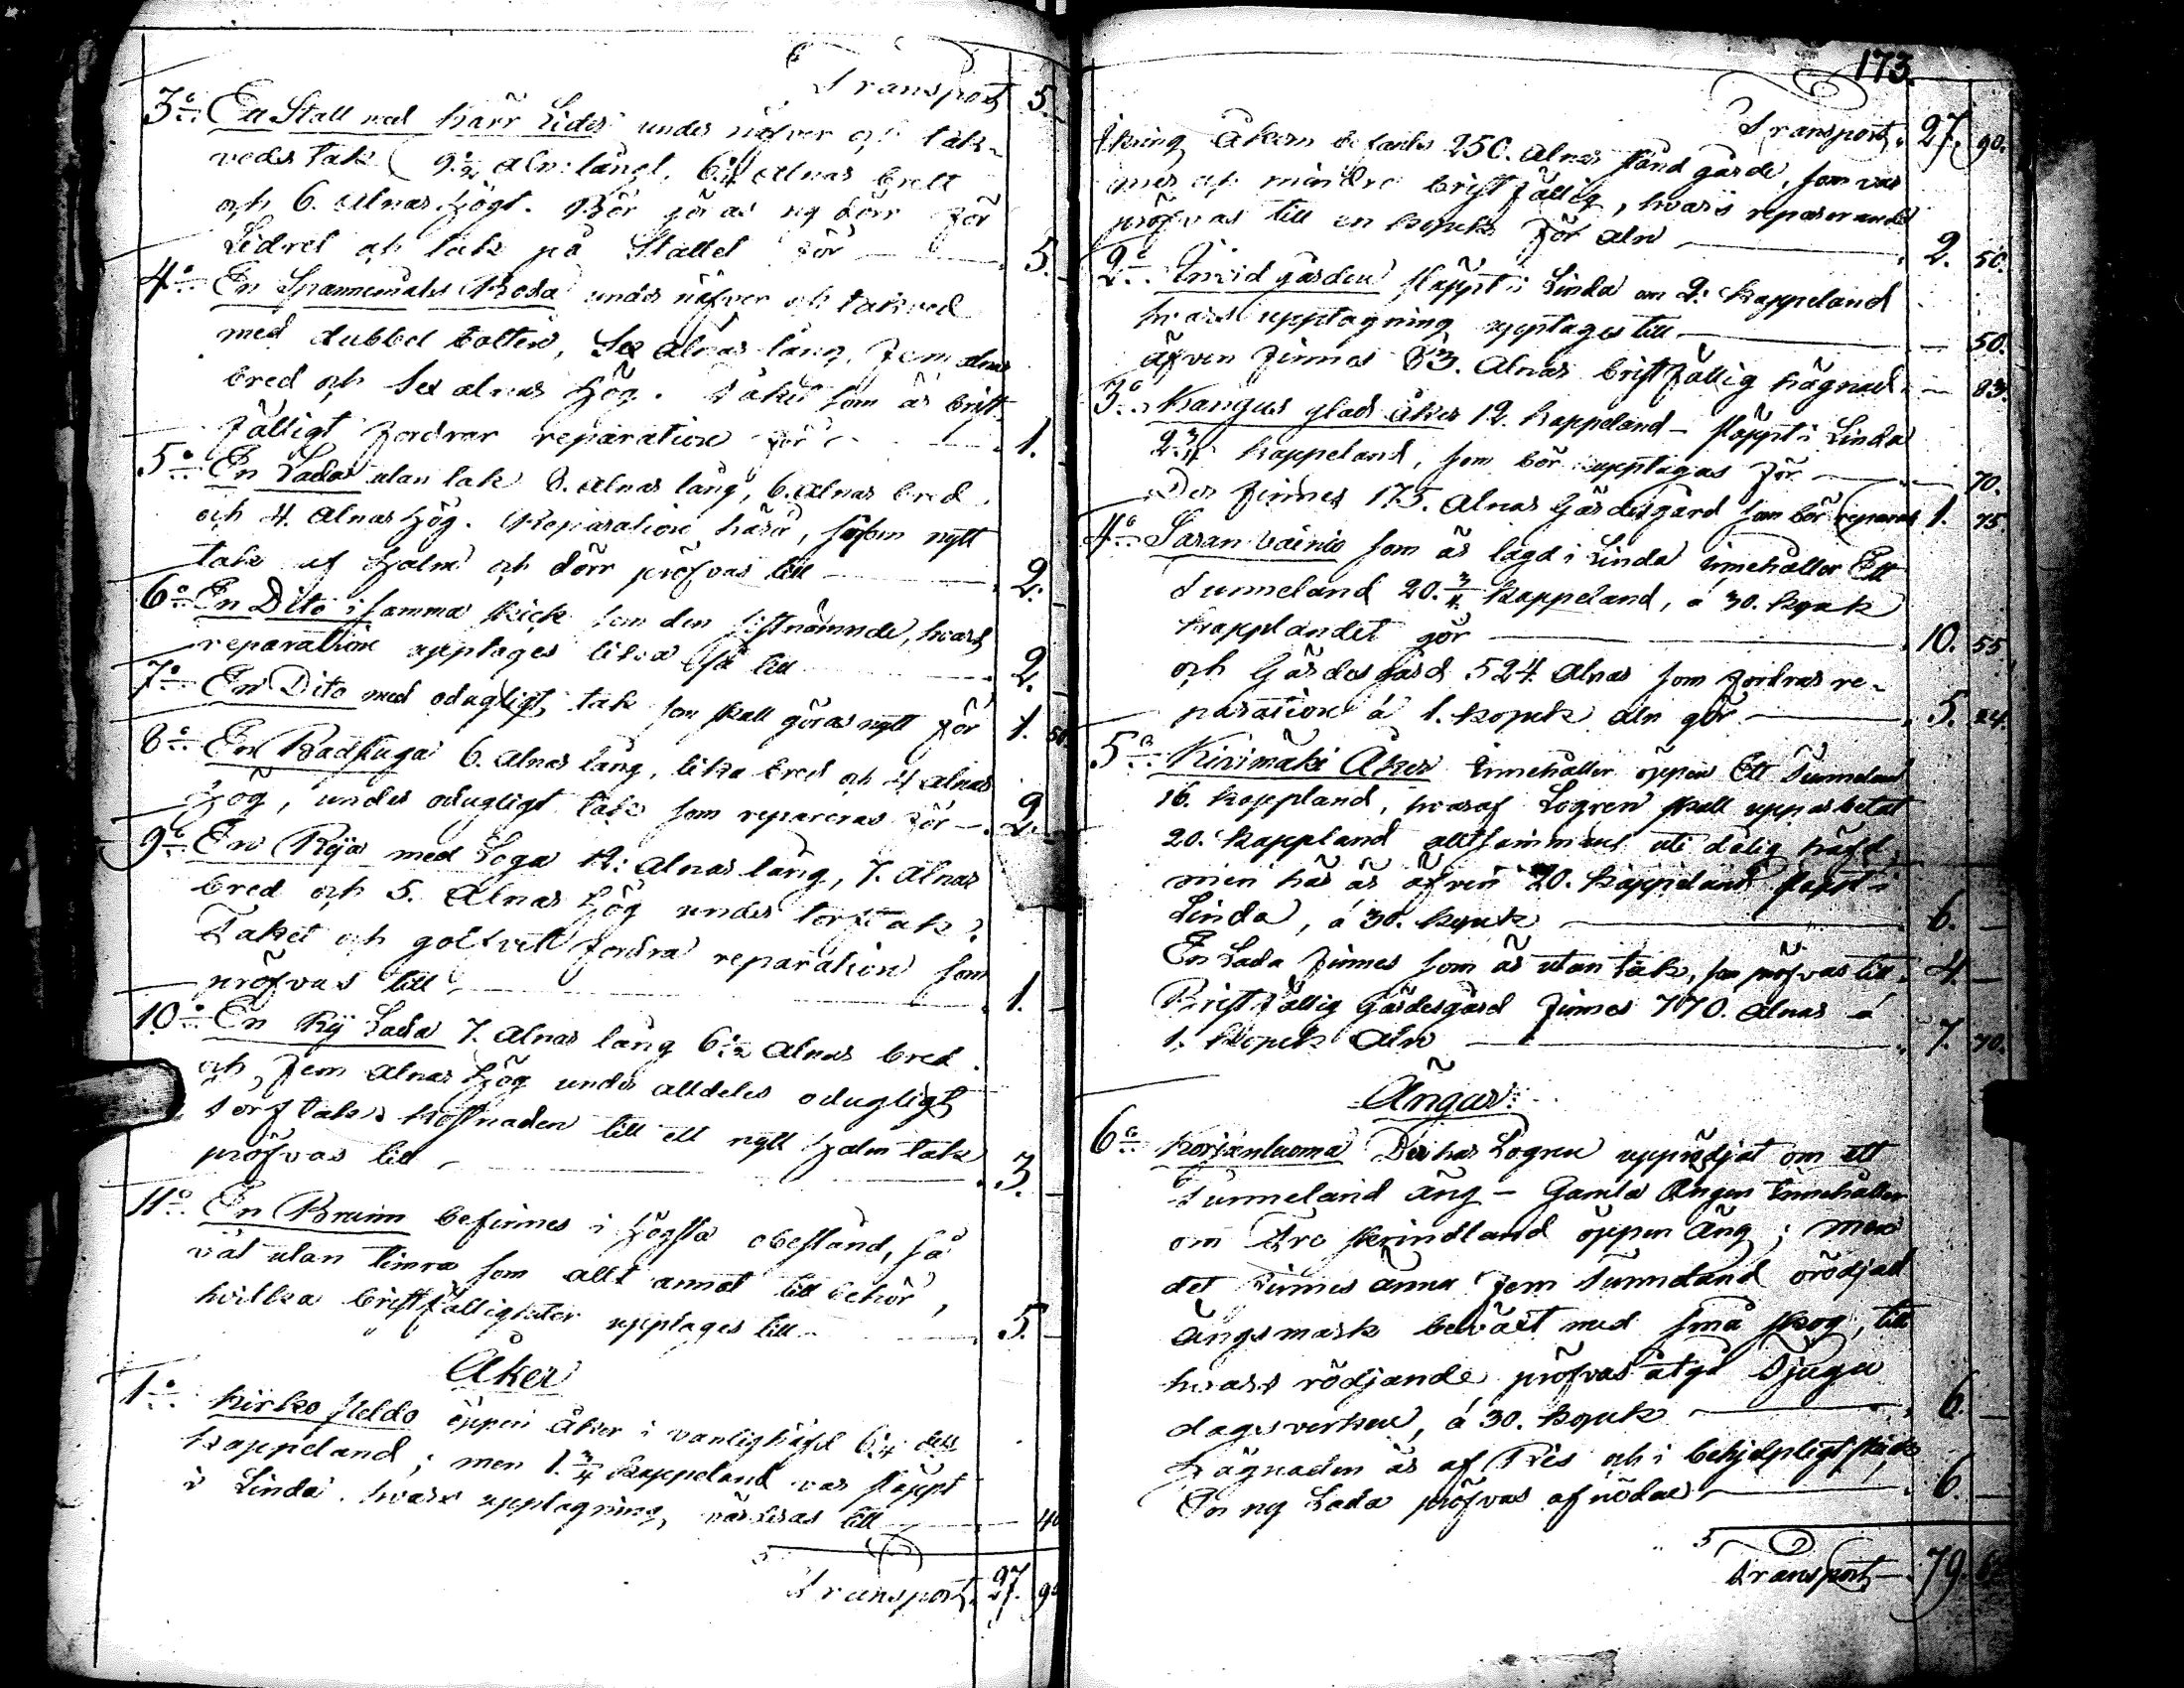 Transport 5.
3:o En Stall med kärr Lider under näfver och tak-
veds tak 9 1/2 aln: långt, 6 1/4 alnar bredt
och 6. alnar högt. Bör göras ny dörr för
Lidret och tak på Stallet för 5.
4:o En Spannemåls Boda under näfver och takved
med dubbel botten, Sex alnar lång, fem alnar
bred och Sex alnar hög. Taket som är brist-
fälligt fordrar reparation för 1.
5:o En Lada utan tak 8. alnar lång, 6. alnar bred
och 4. alnar hög. Reparation håra, såsom nytt
tak af halm och dörr pröfvas till 2.
6:o En Dito i samma skick som den sistnämnde, hvars
reparation upptages lika så till 2.
7:o En Dito med odugligt tak som skall göras nytt för 1. 50.
8:o En Badstuga 6. alnar lång, lika bred och 4 alnar
hög, under odugligt tak som repareras för 2.
9:o En Rija med Loga 12: alnar lång, 7. alnar
bred och 5. Alnar hög under torftak.
Taket och golfvet fordra reparation som
pröfvas till 1.
10:o En Rij Lada 7. alnar lång 6 1/2 alnar bred
och fem alnar hög under alldeles odugligt
torftak. Kostnaden till ett nytt halm tak
pröfvas till 3.
11:o En Brunn befinnes i högsta obestånd, så
väl utan timra som allt annat tillbehör,
hvilka bristfälligheter upptages till 5.
Åker
1:o Kirko Peldo öppen åker i vanlig häfd 6 1/4 dels
kappeland; men 1. 3/4 kappeland var släppt
i Linda. hvars upptagning värderas till 40
Transport 27. 90
173.
Transport. 27. 90.
kring Åkern befanns 250. alnar gärde, som var
mer och mindre bristfällig, hvars reparerande
pröfvas till en kopek för aln 2. 50.
2:o Invid gården släppt i Linda om 2: kappeland
hvars upptagning upptages till 50.
äfven finnes 83. alnar bristfällig hägnad 83.
3:o Kangus glad åker 12. kappeland – släppt i Linda
2. 3/4 kappeland, som bör upptagas för 70.
Der finnes 175. alnar Gärdesgård som bör repareras 1. 75.
4:o Saran vainio som är lagd i Linda innehåller Ett
Tunneland 20. 3/4 kappeland, á 30. kopek
kapplandet gör 10. 55.
och Gärdesgård 524 alnar som fordras re-
paration á 1. kopek aln gör 5. 24.
5:o Kivimäki Åker Innehåller öppen Ett Tunneland
16. kappland, hvaraf Logren skall upparbetat
20. kappland alltsammans uti dålig häfd,
men här är äfven 20. kappeland släpt i
Linda, á 30. kopek 6. –
En Lada finnes som är utan tak, som pröfvas till 4. –
Bristfällig Gärdesgård finnes 770. alnar á
1. kopek aln 7. 70.
Ängar
6:o Korjanluoma Der har Logren upprödjat om ett
Tunneland äng – Gamla Ängen Innehåller
om Tre skrindland öppen Äng; men
det finnes ännu fem Tunneland orödjad
ängsmark beväxt med små skog, till
hvars rödjande pröfvas åtgå Tjugu
dagsverken, á 30. kopek 6. –
Hägnaden är af Ris och i behjelpligt skick
En ny Lada pröfvas af nöden 6. –
Transport 79.